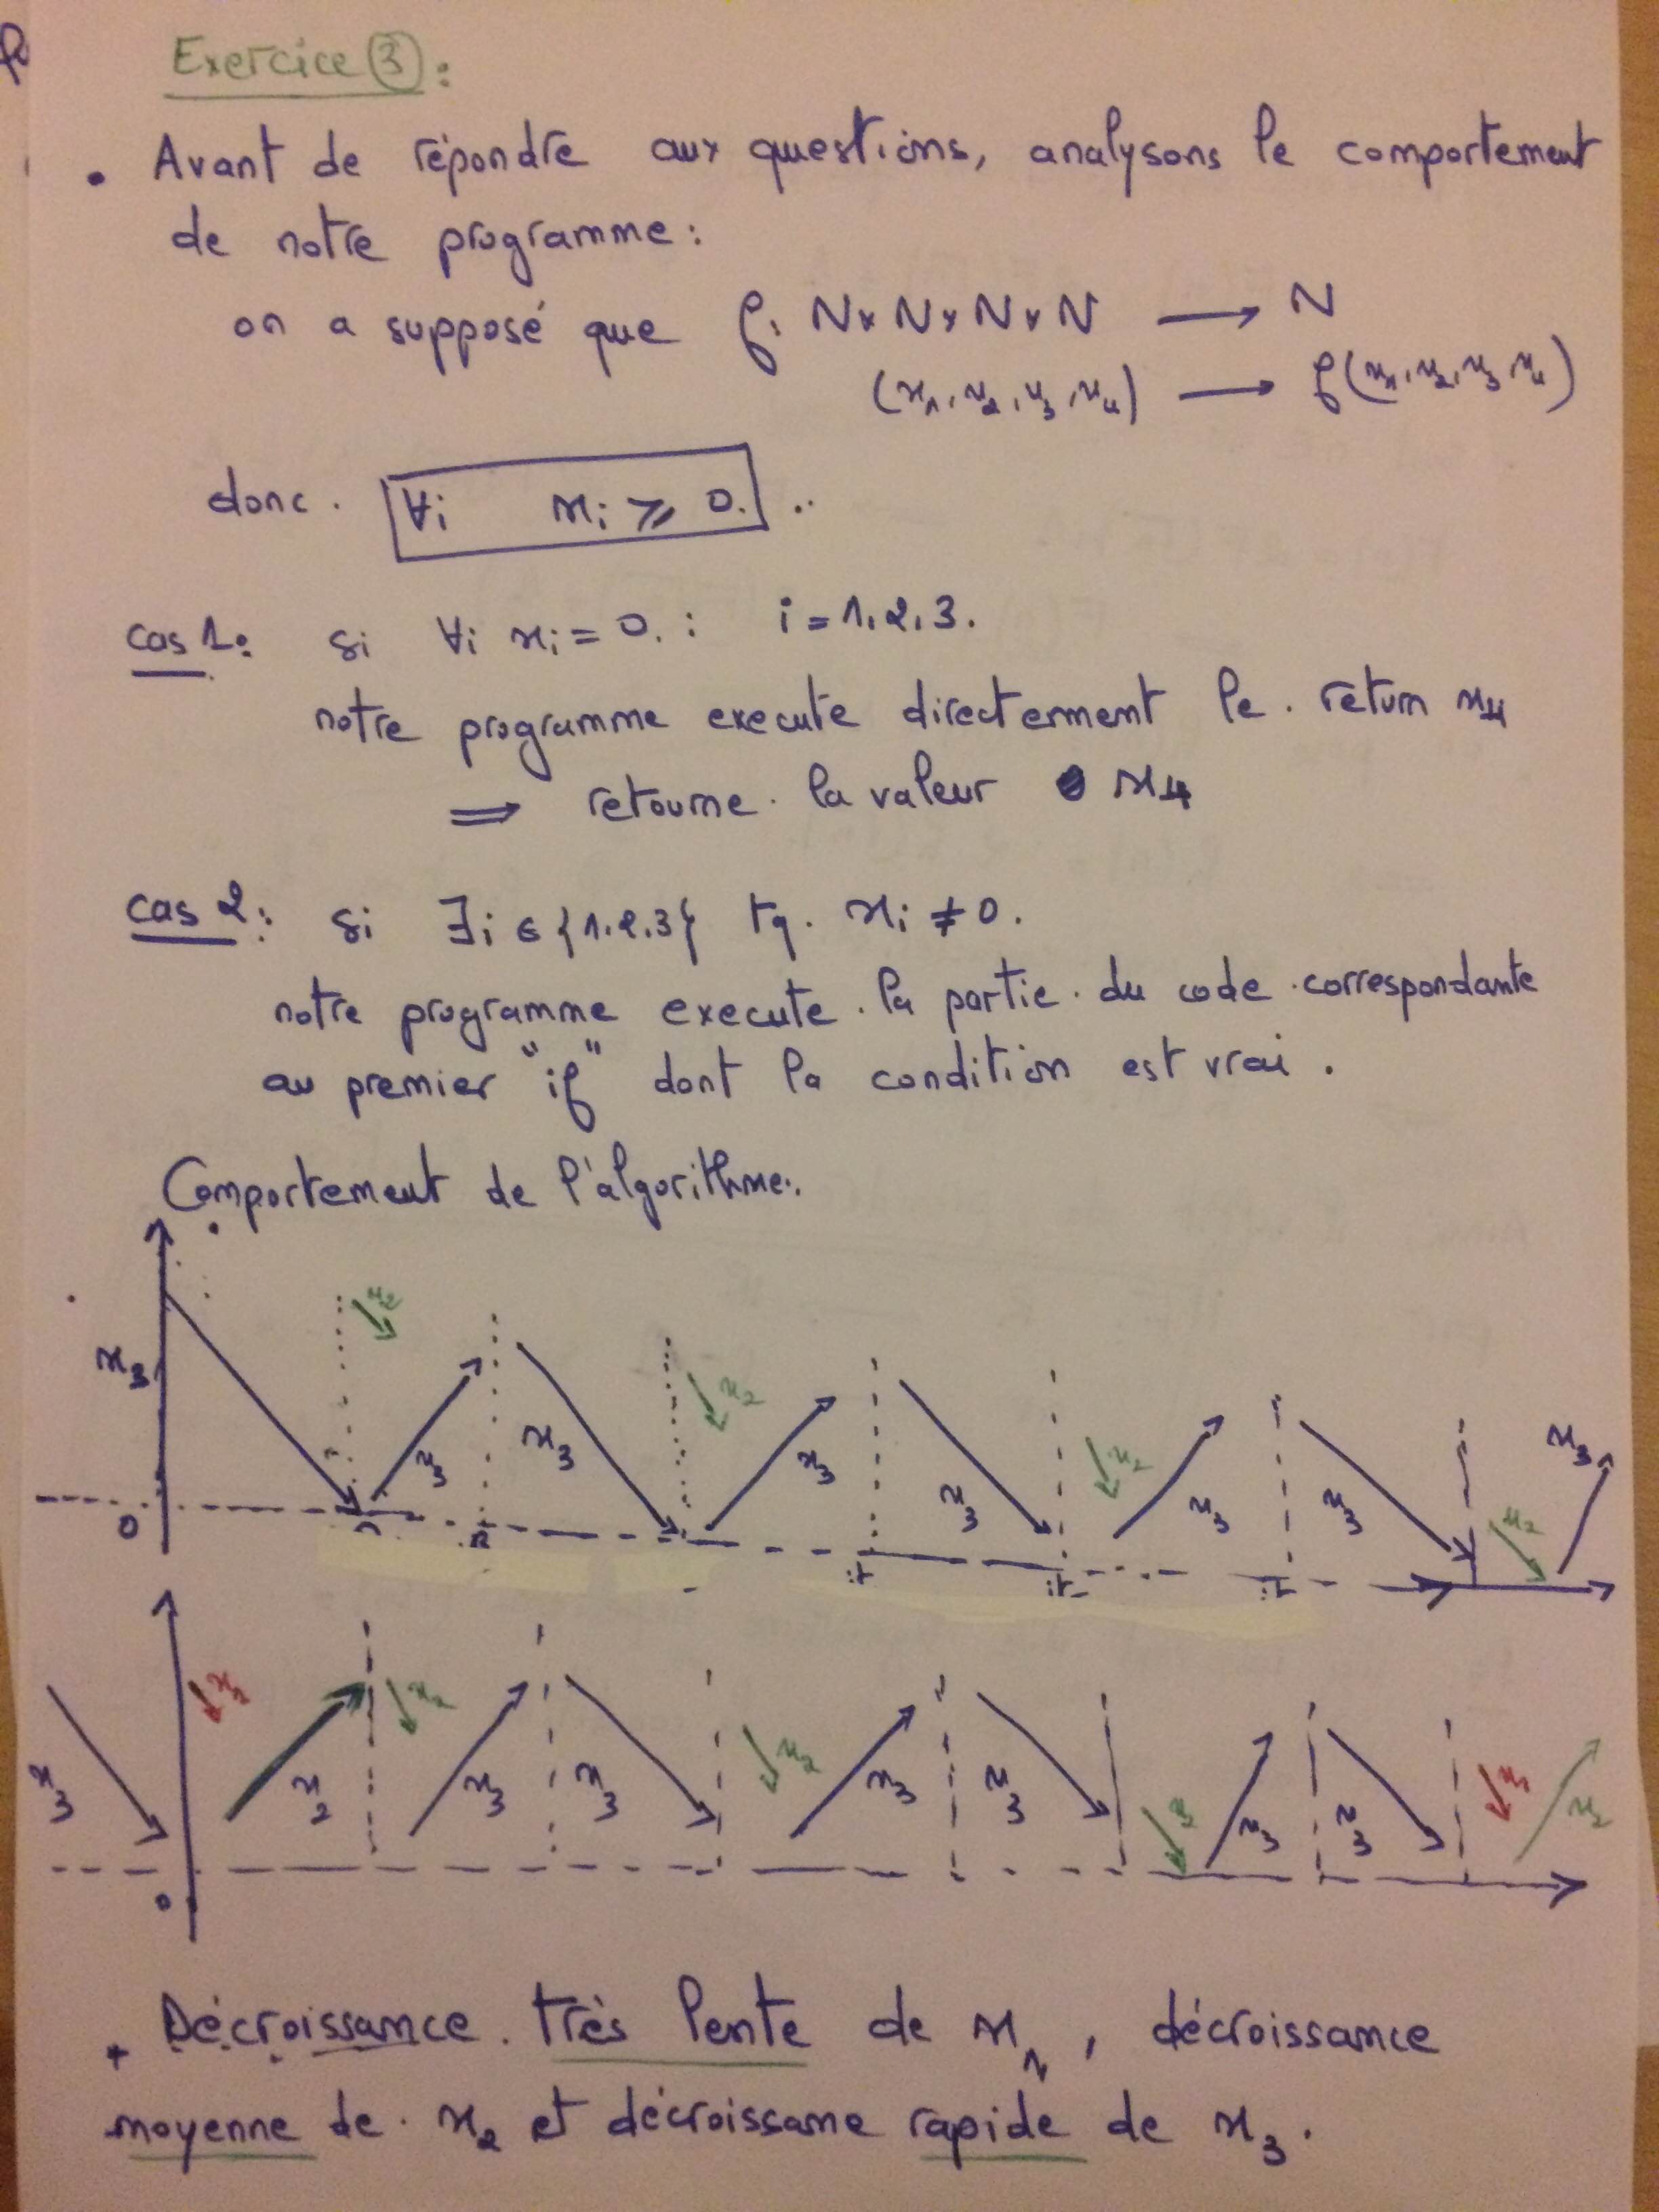 Exercice ③ :
• Avant de répondre aux questions, analysons le comportement
de notre programme :
on a supposé que f: N x N x N x N → N
(x₁, x₂, x₃, x₄) → f(x₁, x₂, x₃, x₄)
donc. ∀i xᵢ ⩾ 0. ..
cas 1: si ∀i xᵢ = 0. : i = 1, 2, 3.
notre programme execute directement le. return x₄
⟹ retourne. la valeur x₄
cas 2: si ∃i ∈ {1.2.3} tq. xᵢ ≠ 0.
notre programme execute. la partie. du code correspondante
au premier "if" dont la condition est vrai.
Comportement de l'algorithme.
x₂
x₃ x₃ x₃ x₂ x₃ x₃ x₂ x₃ x₃ x₂ x₃
0
x₂ x₂ x₂ x₁
x₃ x₂ x₃ x₃ x₃ x₃ x₃ x₃ x₂
0
+ Décroissance. très lente de x₁, décroissance
moyenne de. x₂ et décroissance rapide de x₃.